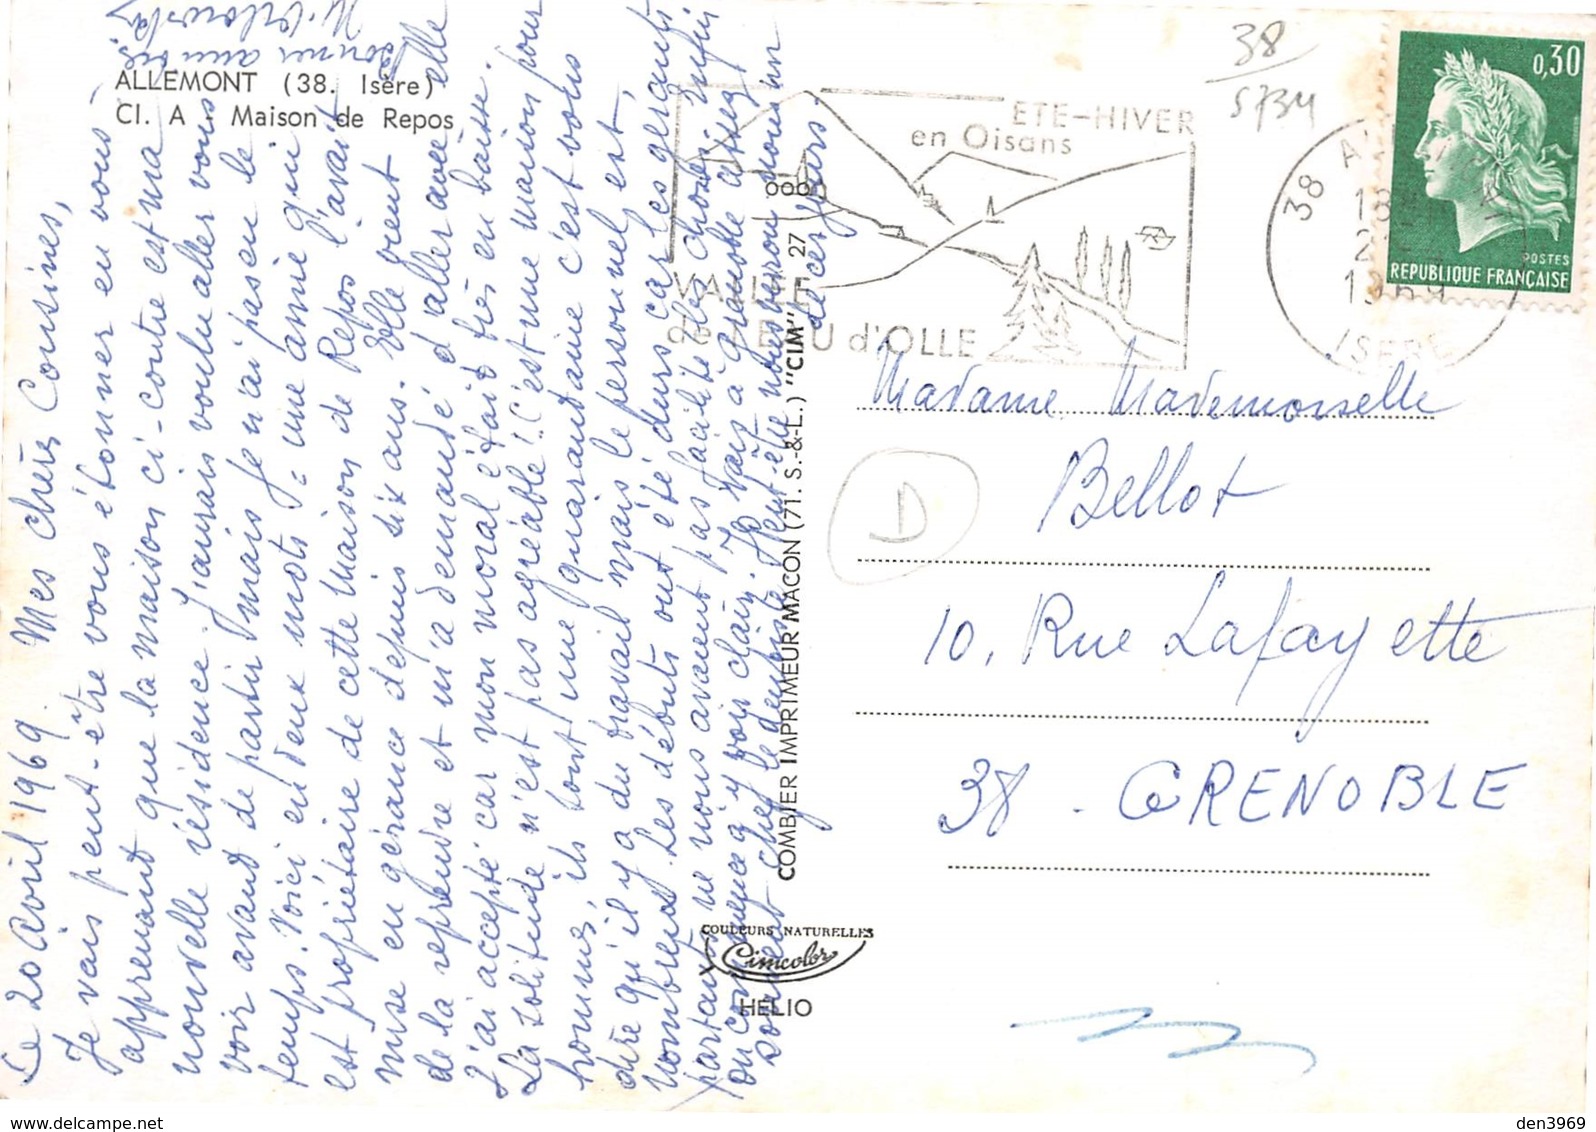 ALLEMONT (38. Isère)
Cl. A - Maison de Repos
Ce 20 Avril 1969. Mes chères Cousines,
Je vais peut-être vous étonner en vous
apprenant que la maison ci-contre est ma
nouvelle résidence. J'aurais voulu aller vous
voir avant de partir mais je n'ai pas eu le
temps. Voici en deux mots = une amie qui
est propriétaire de cette Maison de Repos l'avait
mise en gérance depuis six ans. Elle vient
de la reprendre et m'a demandé d'aller avec elle
J'ai accepté car mon moral était très en baisse.
La solitude n'est pas agréable! C'est une maison pour
hommes, ils sont une quarantaine c'est vous
dire qu'il y a du travail mais le personnel est
nombreux. Les débuts ont été durs car les gérants
partants ne nous avaient pas facilité les choses. Enfin
on commence à y voir clair. Je vais à Grenoble assez
souvent chez le dentiste. Peut-être nous verrons nous un
de ces jours.
bonnes amitiés
ETE-HIVER
en Oisans
VALLEE
de l'EAU d'OLLE
38
5734
38
18
1969
ISERE
0,30
POSTES
REPUBLIQUE FRANÇAISE
Madame Mademoiselle
Bellot
10, Rue Lafayette
38 - GRENOBLE
D
COMBIER IMPRIMEUR MACON (71. S.-&-L.) "CIM"
27
COULEURS NATURELLES
Cimcolor
HELIO
den3969